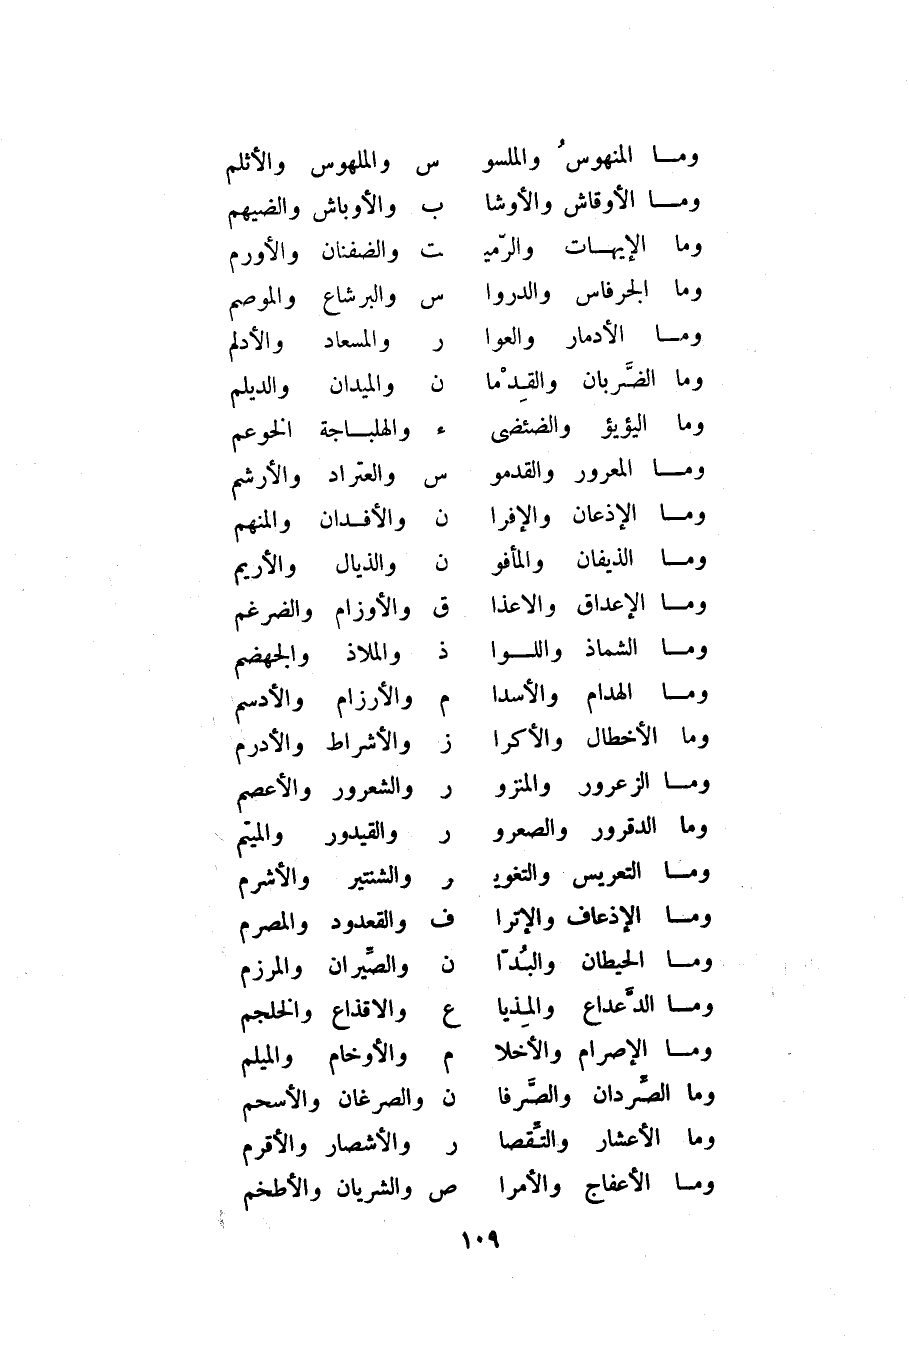 ومــا المنهوسُ والملسو س والملهوس والأثلم
ومــا الأوقاش والأوشا ب والأوباش والضيهم
وما الإيهــات والرّميـ ـت والضفنان والأورم
وما الجرفاس والدروا س والبرشاع والموصم
ومــا الأدمار والعوا ر والمسعاد والأدلم
وما الضَّربان والقِـدْما ن والميدان والديلم
وما اليؤيؤ والضئضى ء والهلبــاجة الخوعم
ومــا المعرور والقدمو س والعتراد والأرشم
ومــا الإذعان والإفرا ن والأفــدان والمنهم
ومــا الذيفان والمأفو ن والذيال والأريم
ومــا الإعداق والاعذا ق والأوزام والضرغم
ومــا الشماذ واللــوا ذ والملاذ والجهضم
ومــا الهدام والأسدا م والأرزام والأدسم
وما الأخطال والأكرا ز والأشراط والأدرم
ومــا الزعرور والمنزو ر والشعرور والأعصم
وما الدقرور والصعرو ر والقيدور والميتم
ومــا التعريس والتغويـ ـر والشنتير والأشرم
ومــا الإذعاف والإترا ف والقعدود والمصرم
ومــا الحيطان والبُدّا ن والصِّيران والمرزم
ومــا الدَّعداع والمِذيا ع والاقذاع والخلجم
ومــا الإصرام والأخلا م والأوخام والميلم
وما الصُّردان والصَّرفا ن والصرغان والأسحم
وما الأعشار والتِّقصا ر والأشصار والأقرم
ومــا الأعفاج والأمرا ص والشريان والأطخم
١٠٩